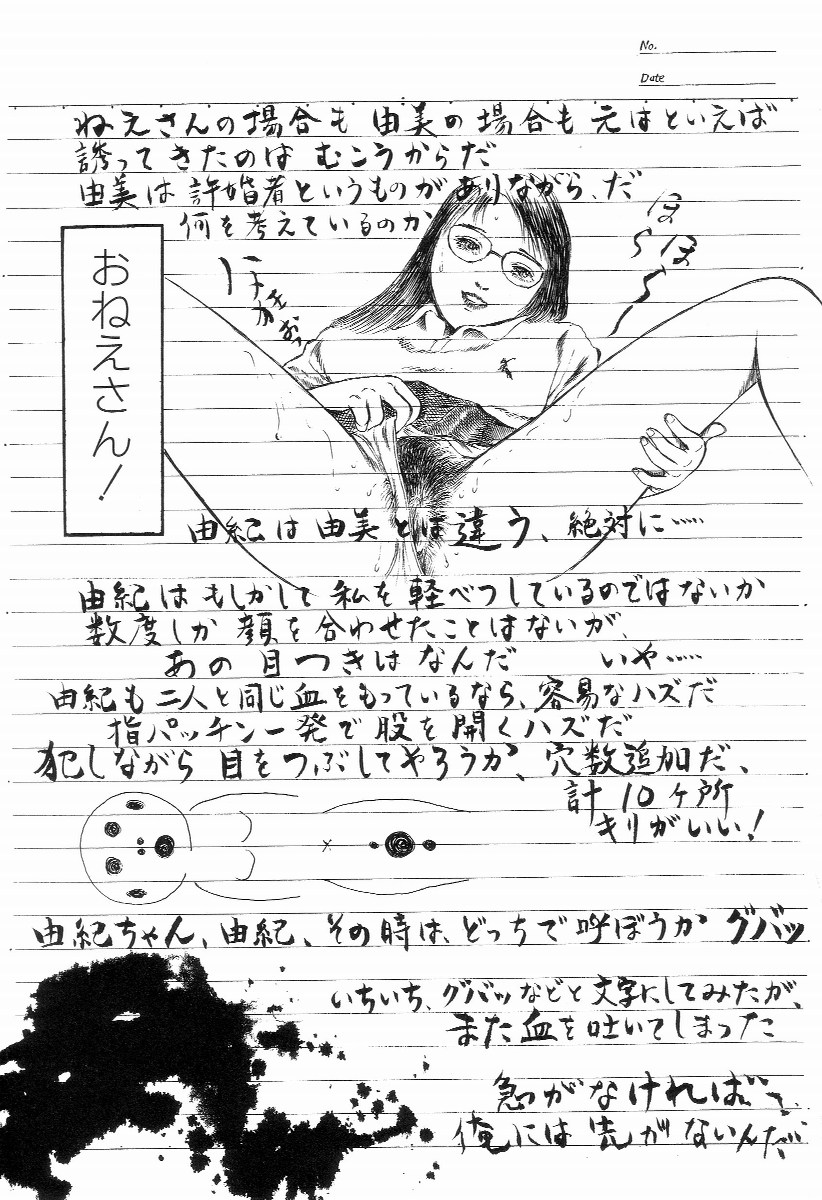 No.
Date
ねえさんの場合も 由美の場合も 元はといえば
誘ってきたのは むこうからだ
由美は許婚者というものがありながら、だ
何を考えているのか
おねえさん!
ほ〜らほ〜ら
由紀は由美とは違う、絶対に……
由紀はもしかして 私を軽べつしているのではないか
数度しか顔を合わせたことはないが、
あの目つきはなんだ いや……
由紀も二人と同じ血をもっているなら、容易なハズだ
指パッチン一発で股を開くハズだ
犯しながら目をつぶしてやろうか、穴数追加だ、
計10ヶ所
キリがいい!
由紀ちゃん、由紀、その時は、どっちで呼ぼうか グバッ
いちいち、グバッなどと文字にしてみたが、
また血を吐いてしまった
急がなければ…
俺には先がないんだ…